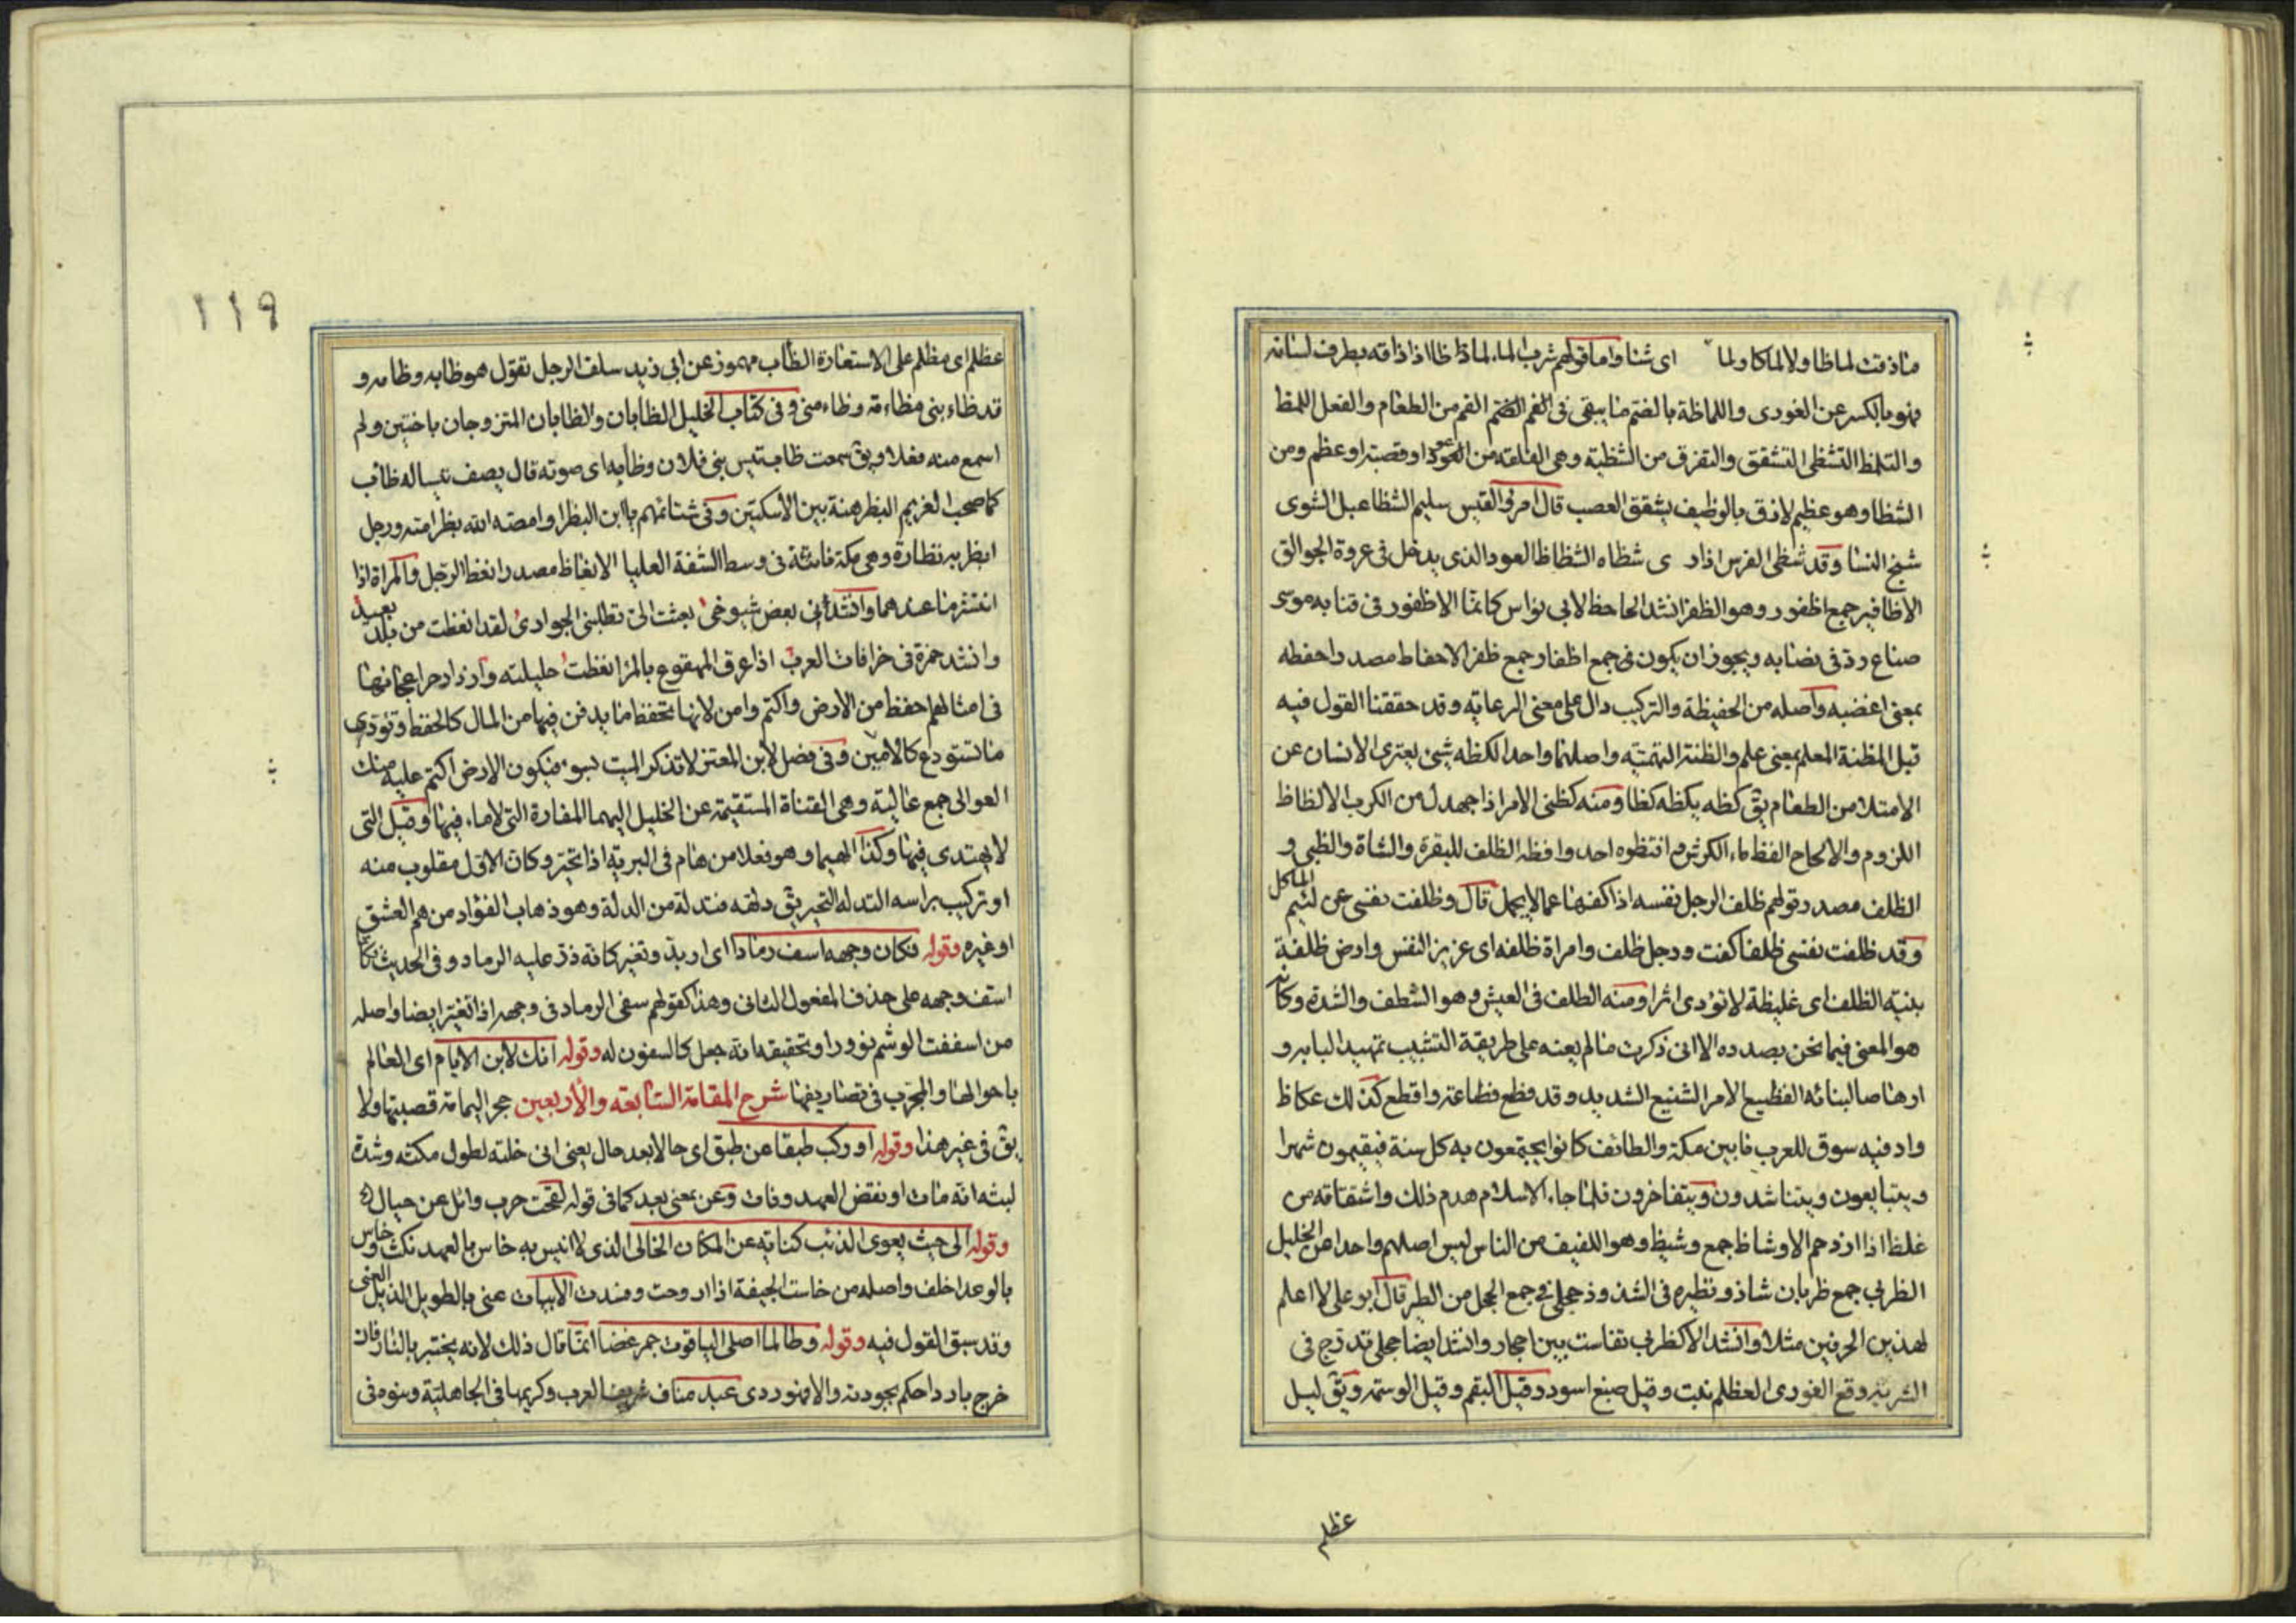 ماذقت لماظا ولا لماكا ولما اى شئا واما قولهم شرب الماء لماظا اذا ذاقه بطرف لسانه
فهو بالكسر عن الغورى واللماظة بالضم ما يبقى فى الفم من الطعام والفعل اللمظ
والتلمظ التشظى التشقق والتفرق من الشظية وهى الفلقة من العود او قصبة او عظم ومن
الشظا وهو عظيم لازق بالوظيف يشقق العصب قال امرؤ القيس سليم الشظا عبل الشوى
شنج النسا وقد شظى الفرس اذا د ى شظاه الشظاظ العود الذى يدخل فى عروة الجوالق
الاظافير جمع اظفور وهو الظفر انشد الجاحظ لابى نواس كانما الاظفور فى قنابه موسى
صناع رد فى نصابه ويجوز ان يكون فى جمع اظفار جمع ظفر الاحفاظ مصدر احفظه
بمعنى اغضبه واصله من الحفيظة والتركيب دال على معنى الرعاية وقد حققنا القول فيه
قبل المظنة المعلم بمعنى علم والظنة التهمة واصلهما واحد الكظه شئ يعترى الانسان عن
الامتلاء من الطعام يق كظه يكظه كظا ومنه كظنى الامر اذا جهدك من الكرب الالظاظ
اللزوم والالحاح الفظ ماء الكرش وافتظوه احد وافظه الظلف للبقرة والشاة والظبى و
الظلف مصدر قولهم ظلف الرجل نفسه اذا كفها عما لا يجمل قال وظلفت نفسى عن لئيم الماكل
وقد ظلفت نفسى ظلفا كفت ورجل ظلف وامراة ظلفه اى عزيز النفس وارض ظلفة
بينة الظلف اى غليظة لا تؤدى اثرا ومنه الظلف فى العيش وهو الشظف والشدة وكانه
هو المعنى فيما نحن بصدده الا انى ذكرت ما لم يعنه على طريقة التشبيب تمهيدا لبابه و
ارهاصا لبنائه الفظيع الامر الشنيع الشديد وقد فظع فظاعة وافظع كذلك عكاظ
واد فيه سوق للعرب ما بين مكة والطائف كانوا يجتمعون به كل سنة فيقيمون شهرا
ويتبايعون ويتناشدون ويتفاخرون فلما جاء الاسلام هدم ذلك واشتقاقه من
غلظ اذا ازدحم الاوشاظ جمع وشيظ وهو اللفيف من الناس ليس اصلهم واحدا من الخليل
الظربى جمع ظربان شاذ ونظيره فى الشذوذ حجلى فى جمع الحجل من الطير قال ابو على لا اعلم
لهذين الحرفين مثلا وانشد الا كظربى تفاست بين احجار وانشد ايضا حجلى تدرج فى
الشربه وقع الغورى العظلم نبت وقيل صبغ اسود وقيل البقم وقيل الوسمة ويق ليل
عظلم
١١٩
عظلم اى مظلم على الاستعارة الظأب مهموز عن ابى زيد سلف الرجل تقول هو ظابه وظامه و
قد ظاءبنى مظاءمة وظاءمنى وفى كتاب الخليل الظابان والظابان المتزوجان باختين ولم
اسمع منه فعلا ويق سمعت ظاب تيس بنى فلان وظابه اى صوته قال يصف تيسا له ظاب
كما صخب الغريم البظر هنة بين الاسكتين وفى شتائمهم يا ابن البظراء وامصه الله بظر امته ورجل
ابظر به بظارة وهى هكة ناتئة فى وسط الشفة العليا الانعاظ مصدر انعظ الرجل والمراة اذا
انتشر ما عندهما وانشدنى بعض شيوخى بعثت الى تطلبنى الجوارى لقد انعظت من بلد بعيد
وانشد حمزة فى خرافات العرب اذا عرق المهقوع بالمرء انعظت حليلته وازداد حرا عجانها
فى امثالهم احفظ من الارض واكتم وامن لانها تحفظ ما يدفن فيها من المال كالحفظ وتؤدى
ما تستودع كالامين وفى فصل لابن المعتز لا تذكر الميت بسوء فيكون الارض اكتم عليه منك
العوالى جمع عالية وهى القناة المستقيمة عن الخليل اليهما المفازة التى لا ماء فيها وقيل التى
لا يهتدى فيها وكذا الهيما وهو فعلا من هام فى البرية اذا تحير وكان الاول مقلوب منه
او تركيب براسه التدله التحير يق دلهه فتدله من الدله وهو ذهاب الفؤاد من هم العشق
او غيره وقوله فكان وجهه اسف رمادا اى اربد وتغير كانه ذر عليه الرماد وفى الحديث كانما
استف وجهه على حذف المفعول الثانى وهذا كقولهم سفى الرماد فى وجهه اذا تغير ايضا واصله
من اسففت الوشم نؤورا وتحقيقه انه جعل كالسفوف له وقوله انك لابن الايام اى العالم
باحوالها والمجرب فى تصاريفها شرح المقامة السابعة والأربعين حجر اليمامة قصبتها ولا
يق فى غير هذا وقوله او ركب طبقا عن طبق اى حالا بعد حال يعنى انى خلته لطول مكثه وشدة
لبثه انه مات او نقض العهد وفات وعن بمعنى بعد كما فى قوله لقحت حرب وائل عن حيال
وقوله الى حيث يعوى الذئب كناية عن المكان الخالى الذى لا انيس به خاس بالعهد نكث وخاس
بالوعد اخلف واصله من خاست الجيفة اذا اروحت وفسدت الابيات عنى بالطويل الذيل الغنى
وقد سبق القول فيه وقوله وطالما اصلى الياقوت جمر غضا انما قال ذلك لانه يختبر بالنار فان
خرج باردا حكم بجودته والا فهو ردى عبد مناف شريف العرب وكريمها فى الجاهلية وبنوه فى